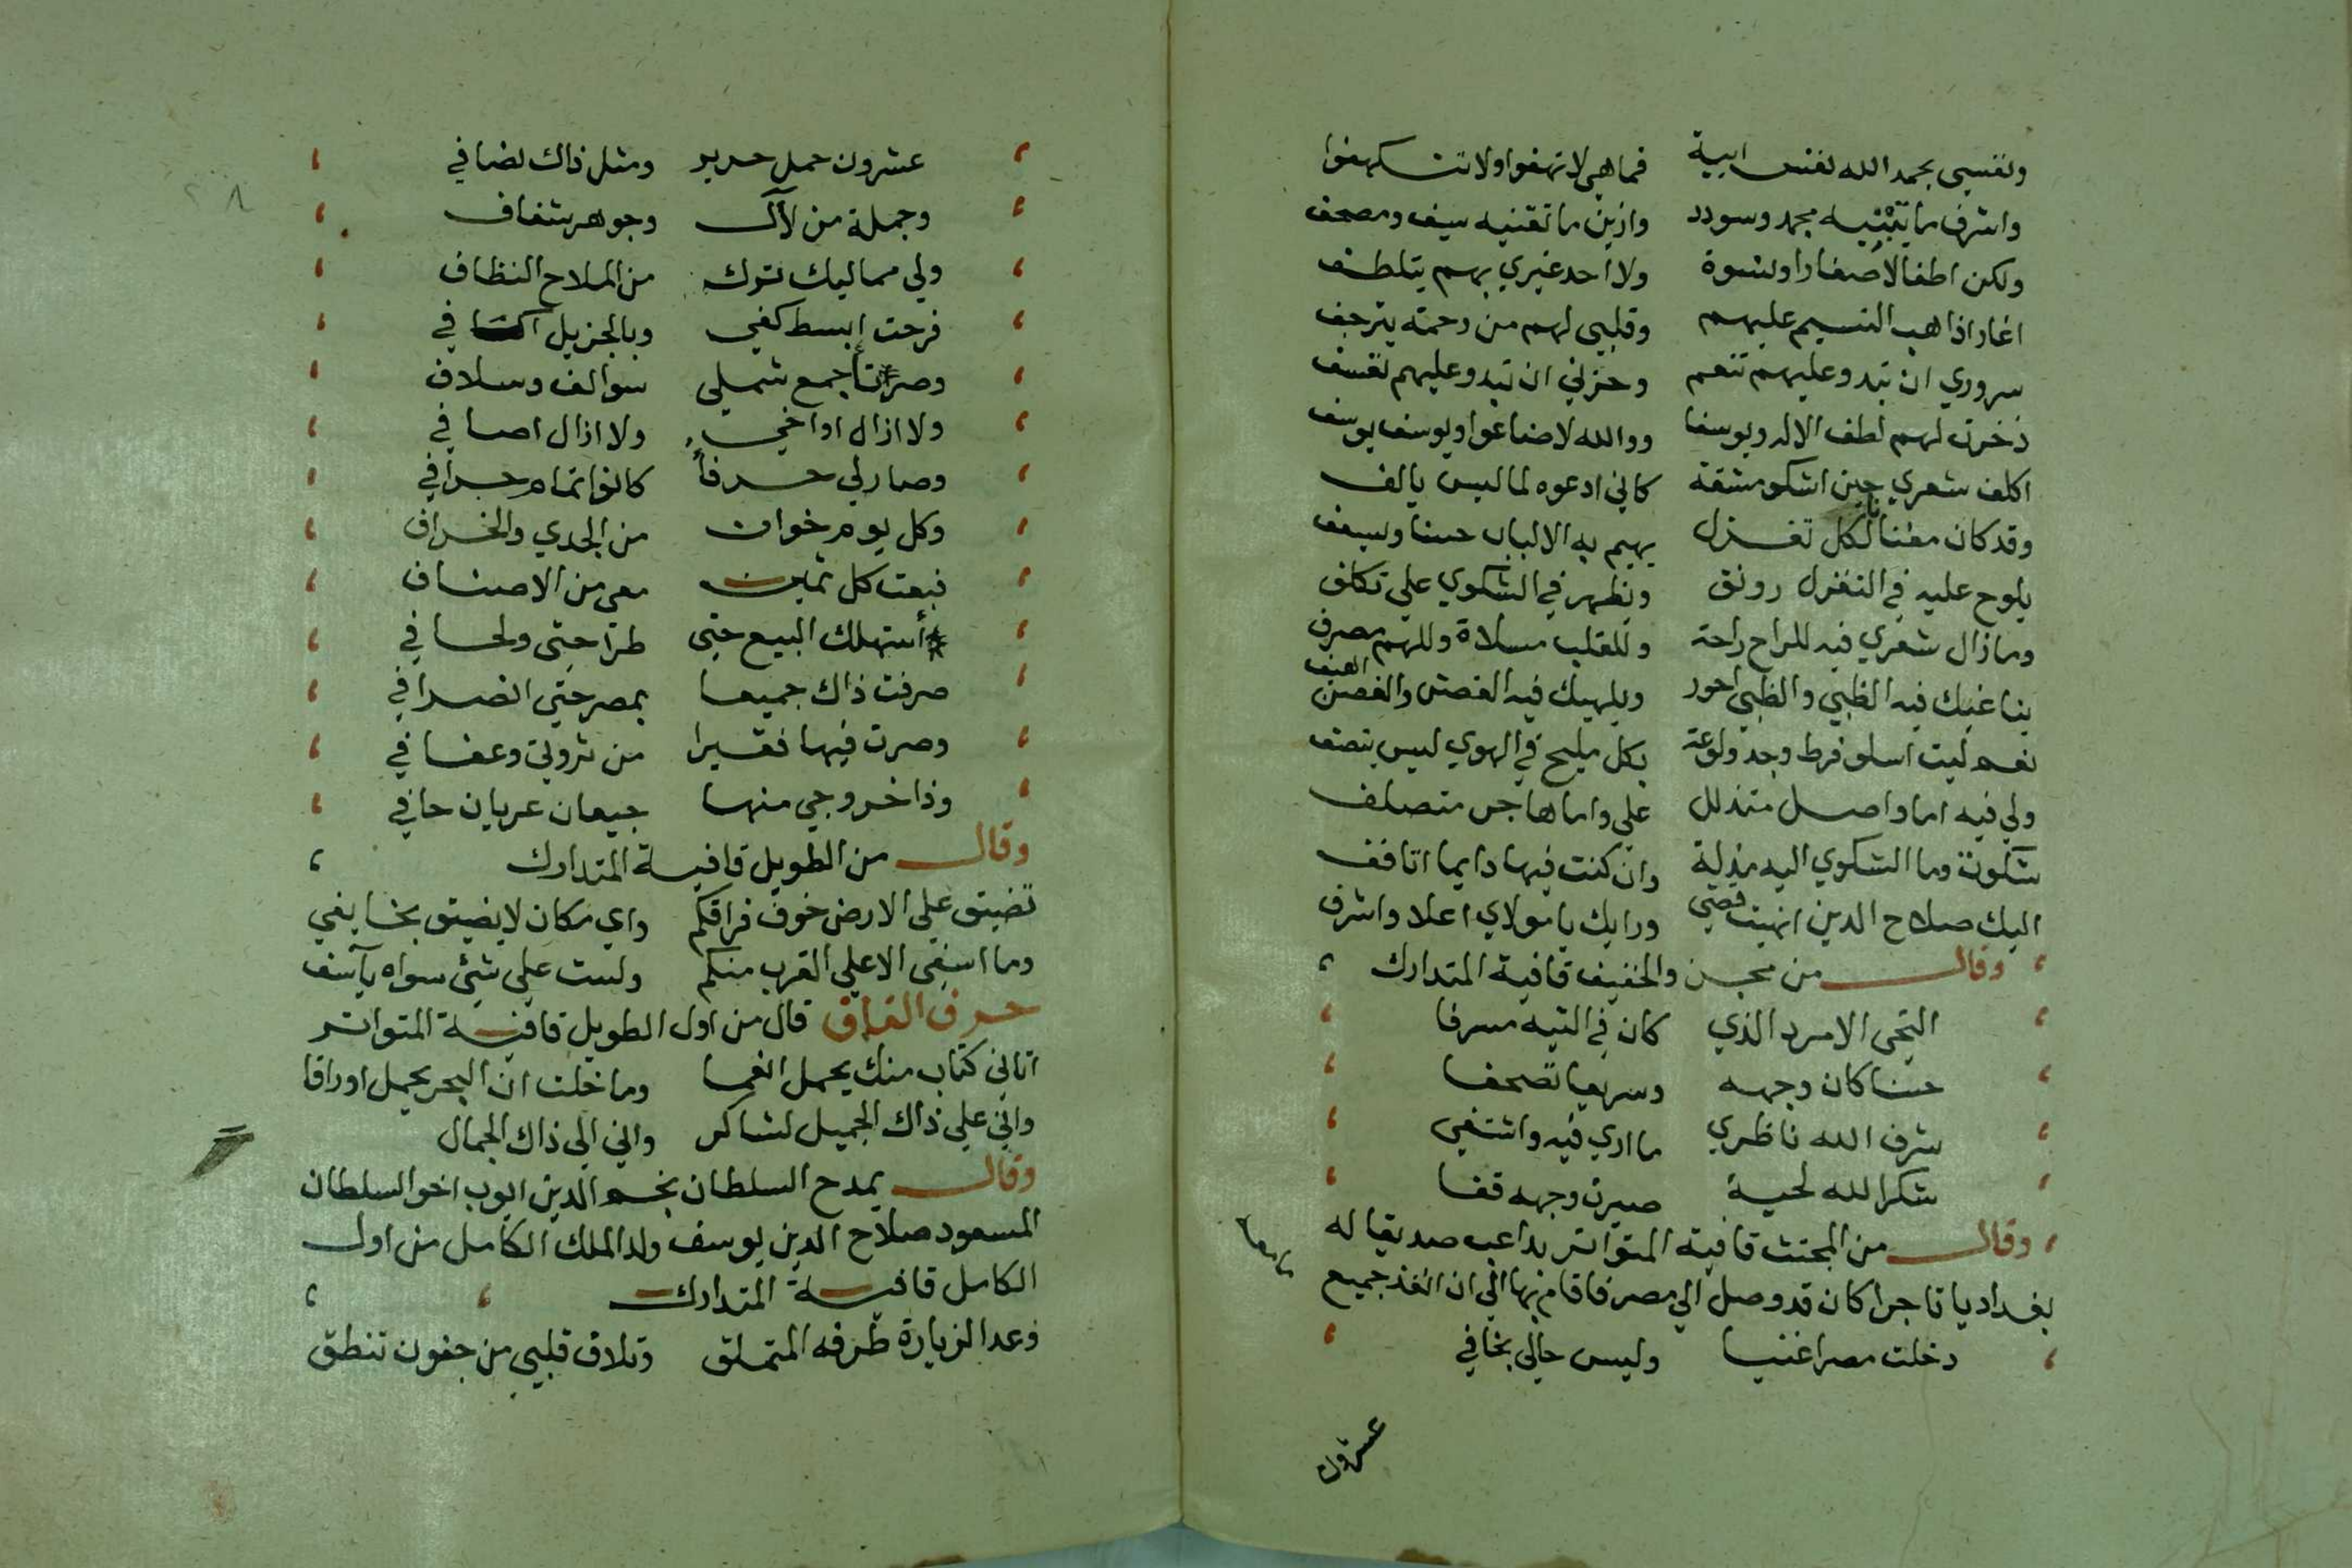 ونفسي بحمد الله نفس ابية فما هي لا تهفوا ولا تتكهفوا
واشرف ما تبنيه مجد وسودد وازين ما تقتنيه سيف ومصحف
ولكن اطفالا صغارا ونسوة ولا احد غيري بهم يتلطف
اغار اذا هب النسيم عليهم وقلبي لهم من رحمة يترجف
سروري ان تبدو عليهم تنعم وحزني ان تبدو عليهم تقشف
ذخرت لهم لطف الاله ويوسفا ووالله لا ضاعوا ويوسف يوسف
اكلف شعري حين اشكو مشقة كاني ادعوه لما ليس يالف
وقد كان معنيا لكل تغزل يهيم به الالباب حسنا ويشغف
يلوح عليه في التغزل رونق ويظهر في الشكوي علي تكلف
وما زال شعري فيه للراح راحة وللقلب مسلاة وللهم مصرف
يناغيك فيه الظبي والظبي احور ويلهيك فيه الغصن والغصن اهيف
نعم ليت اسلو فرط وجد ولوعة بكل مليح في الهوي ليس ينصف
ولي فيه اما واصل متدلل علي واما هاجر متصلف
شكوت وما الشكوي اليه مذلة وان كنت فيها دايما اتافف
اليك صلاح الدين انهيت قصتي ورايك يا مولاي اعلا واشرف
وقال من مجزو الخفيف قافية المتدارك
التحى الامرد الذي كان في التيه مسرفا
حسنا كان وجهه وسريعا تصحفا
شرف الله ناظري ما اري فيه واشتفى
شكرا لله لحية صيرت وجهه قفا
وقال من المجتث قافية المتواتر يداعب صديقا له
بغداديا تاجرا كان قد وصل الي مصر فاقام بها الي ان انفذ جميع
دخلت مصرا غنيا وليس حالي بخافي
عشرون
عشرون حمل حرير ومثل ذاك نصافي
وجملة من لآل وجوهر شفاف
ولي مماليك ترك من الملاح النظاف
فرحت ابسط كفي وبالجزيل اكافي
وصرت اجمع شملي سوالف وسلاف
ولا ازال اواخي ولا ازال اصافي
وصار لي حرفا كانوا تمام حرافي
وكل يوم خوان من الجدي والخراف
فبعت كل ثمين معي من الاصناف
أستهلك البيع حتى طراحتي ولحافي
صرفت ذاك جميعا بمصر حتي انصرافي
وصرت فيها فقيرا من ثروتي وعفافي
وذا خروجي منها جيعان عريان حافي
وقال من الطويل قافية المتدارك
تضيق علي الارض خوف فراقكم واي مكان لا يضيق بخايفي
وما اسفي الا علي القرب منكم ولست علي شئ سواه بآسف
حرف القاف قال من اول الطويل قافية المتواتر
اتاني كتاب منك يحمل انعما وما خلت ان البحر يحمل اوراقا
واني علي ذاك الجميل لشاكر واني الي ذاك الجمال
وقال يمدح السلطان نجم الدين ايوب اخو السلطان
المسعود صلاح الدين يوسف ولد الملك الكامل من اول
الكامل قافية المتدارك
وعد الزيارة طرفه المتملق وتلاق قلبي من جفون تنطق